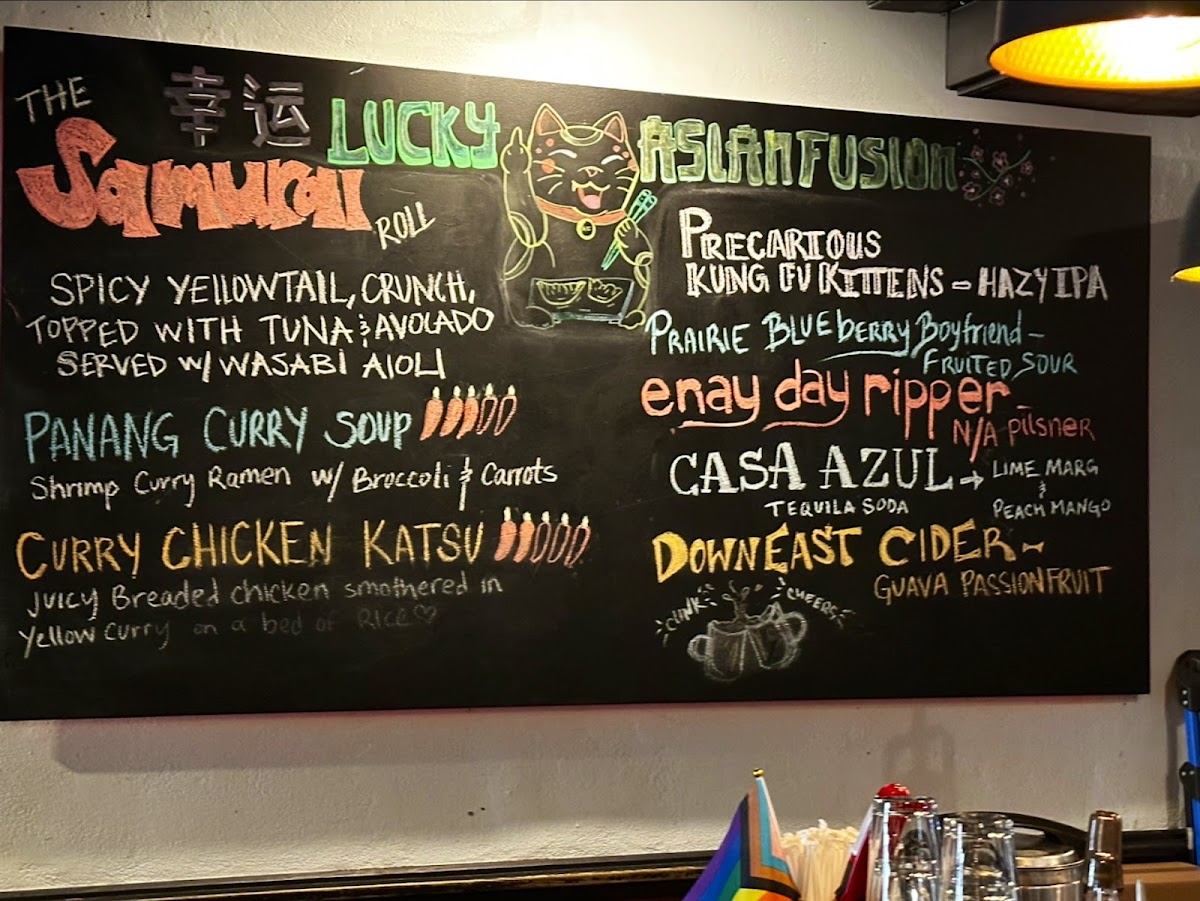 幸运 LUCKY ASIAN FUSION
THE
SAMURAI
ROLL
SPICY YELLOWTAIL, CRUNCH,
TOPPED WITH TUNA & AVOCADO
SERVED W/ WASABI AIOLI
PANANG CURRY SOUP
Shrimp Curry Ramen w/ Broccoli & Carrots
CURRY CHICKEN KATSU
JUICY Breaded chicken smothered in
Yellow curry on a bed of RICE♡
PRECARIOUS
KUNG FU KITTENS - HAZY IPA
PRAIRIE BLUEberry Boyfriend -
FRUITED SOUR
enay day ripper -
N/A pilsner
CASA AZUL → LIME MARG
&
TEQUILA SODA PEACH MANGO
DOWNEAST CIDER -
GUAVA PASSIONFRUIT
CLINK
CHEERS